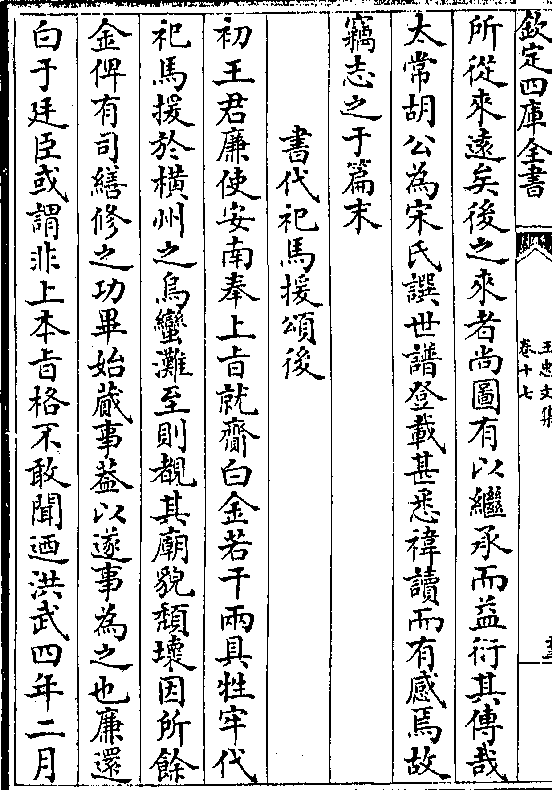 欽定四庫全書
王忠文集
卷十七
所從來遠矣後之來者尚圖有以繼承而益衍其傳哉
太常胡公為宋氏譔世譜登載甚悉禕讀而有感焉故
竊志之于篇末
書代祀馬援頌後
初王君廉使安南奉上㫖就齎白金若干兩具牲牢代
祀馬援於横州之烏蠻灘至則覩其廟貌頽壊因所餘
金俾有司繕修之功畢始蕆事葢以遂事為之也廉還
白于廷臣或謂非上本㫖格不敢聞迺洪武四年二月